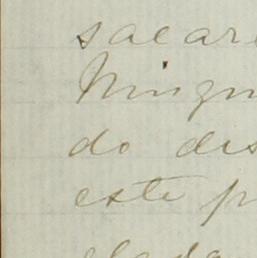 sacare
Ningun
do des
este p